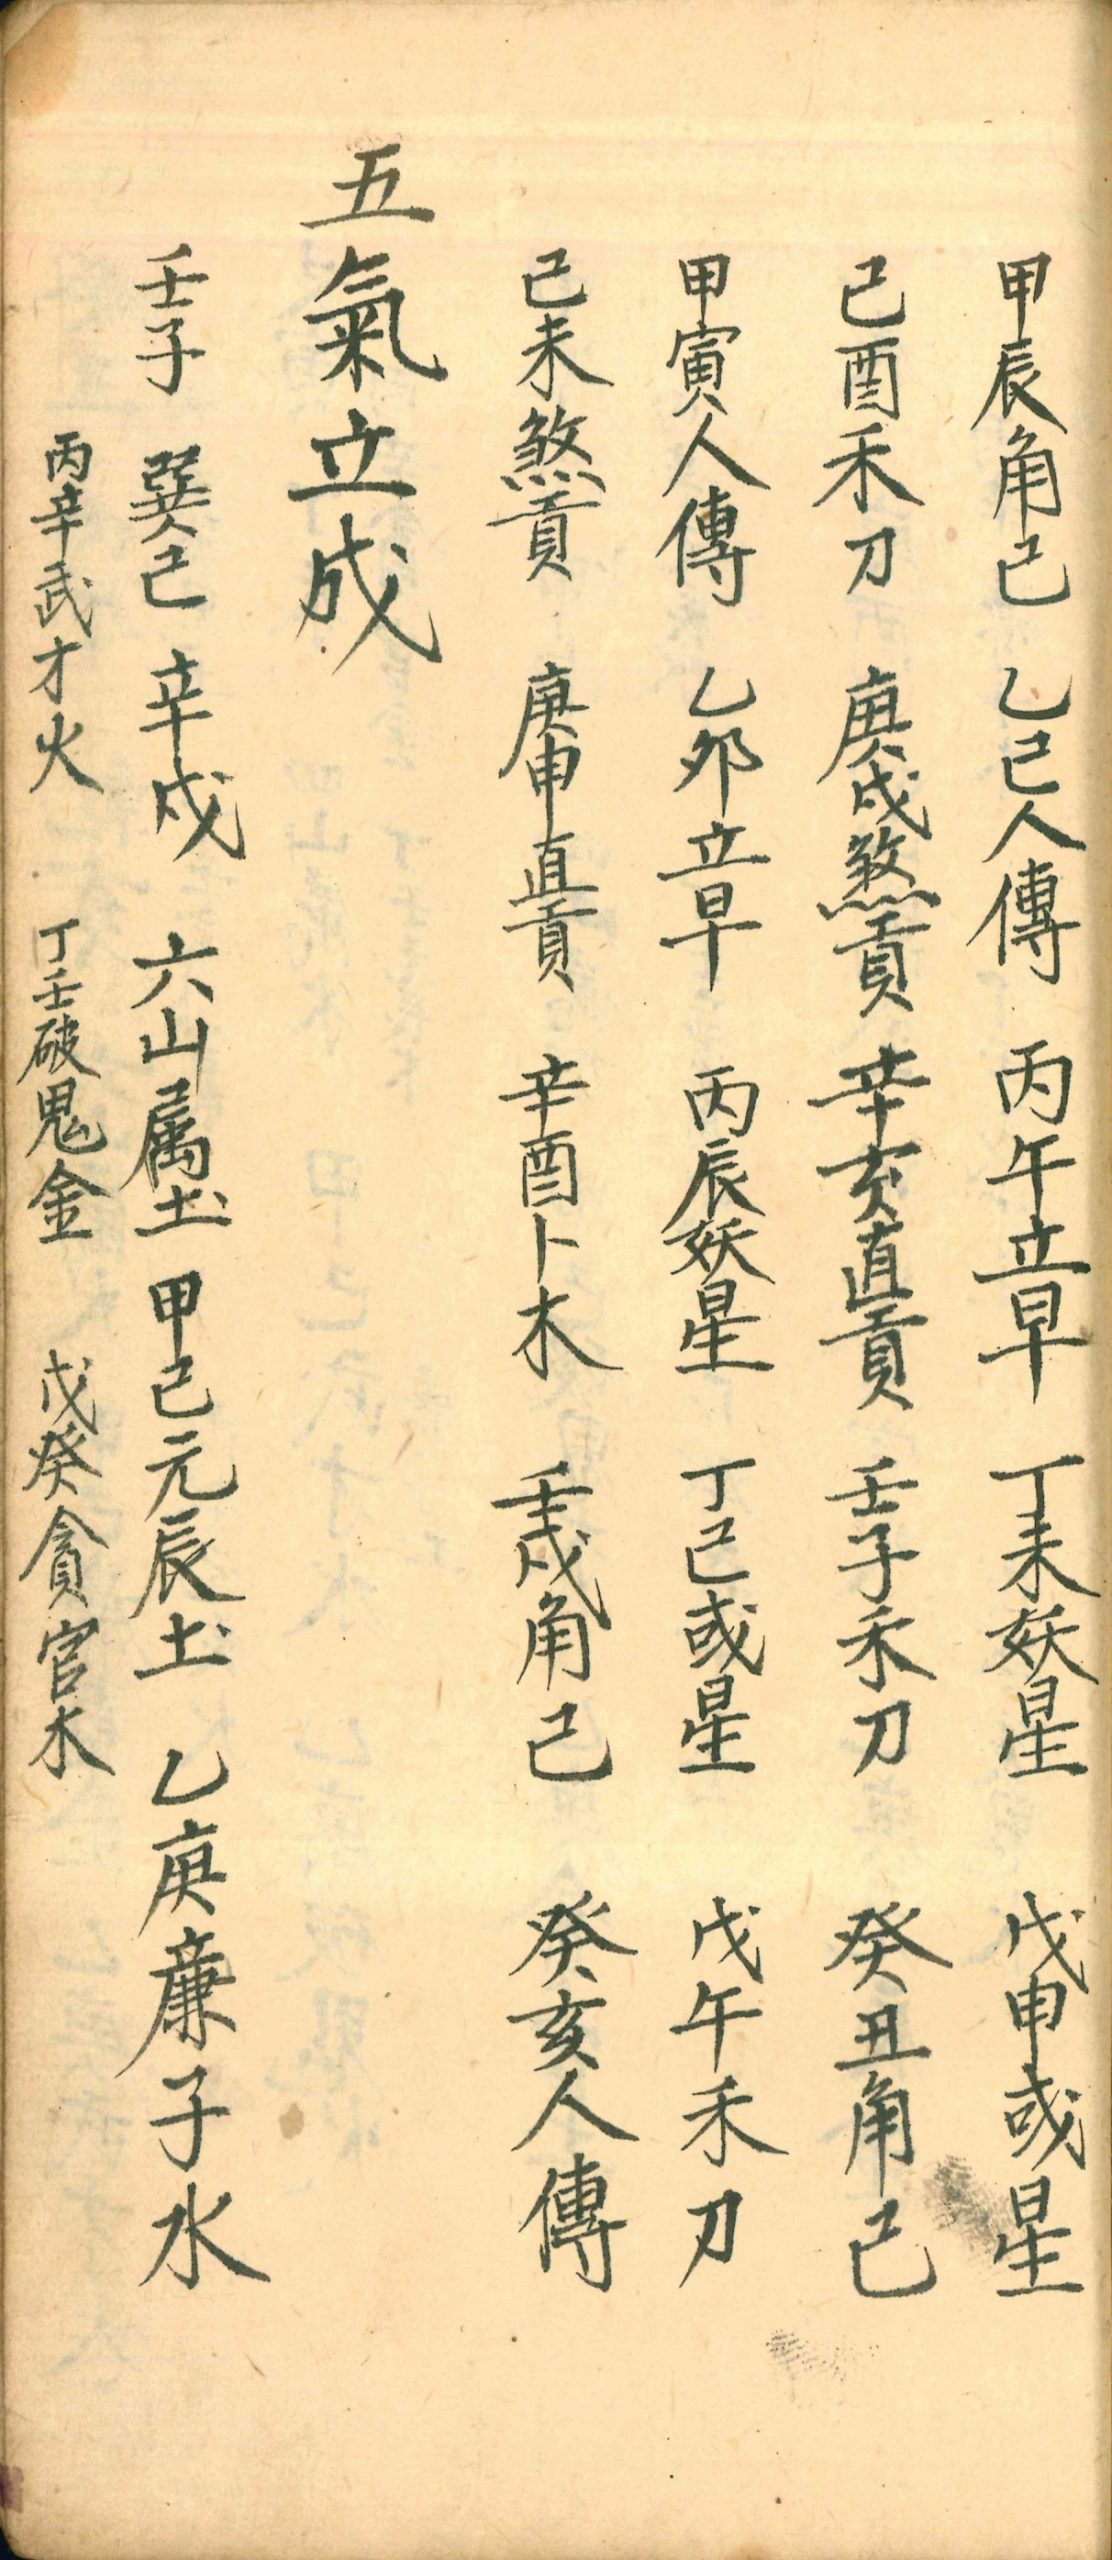 甲辰角己　乙巳人傳　丙午立早　丁未妖星　戊申或星
己酉禾刀　庚戌煞貢　辛亥直貢　壬子禾刀　癸丑角己
甲寅人傳　乙卯立早　丙辰妖星　丁巳或星　戊午禾刀
己未煞貢　庚申直貢　辛酉卜木　壬戌角己　癸亥人傳
五氣立成
壬子　巽巳　辛戌　六山属土　甲己元辰土　乙庚廉子水
丙辛武才火　丁壬破鬼金　戊癸貪官木